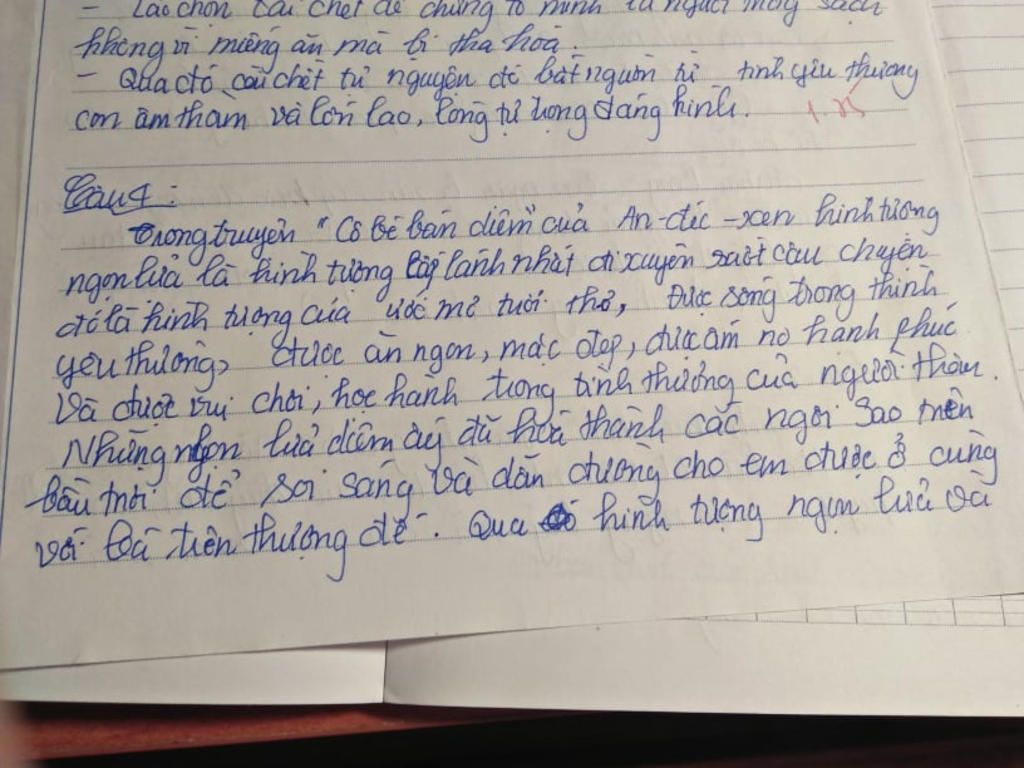 - Lão chọn cái chết để chứng tỏ mình là người trong sạch
không vì miếng ăn mà bị tha hoá.
- Qua đó, cái chết tự nguyện đó bắt nguồn từ tình yêu thương
con âm thầm và lớn lao, lòng tự trọng đáng kính.
Câu 4:
Trong truyện "Cô bé bán diêm" của An-đéc-xen hình tượng
ngọn lửa là hình tượng lấp lánh nhất đi xuyên suốt câu chuyện
đó là hình tượng của ước mơ tuổi thơ, được sống trong thình
yêu thương, được ăn ngon, mặc đẹp, được ấm no hạnh phúc
và được vui chơi, học hành trong tình thương của người thân.
Những ngọn lửa diêm ấy đã hoá thành các ngôi sao trên
bầu trời để soi sáng và dẫn đường cho em được ở cùng
với bà trên thượng đế. Qua hình tượng ngọn lửa và